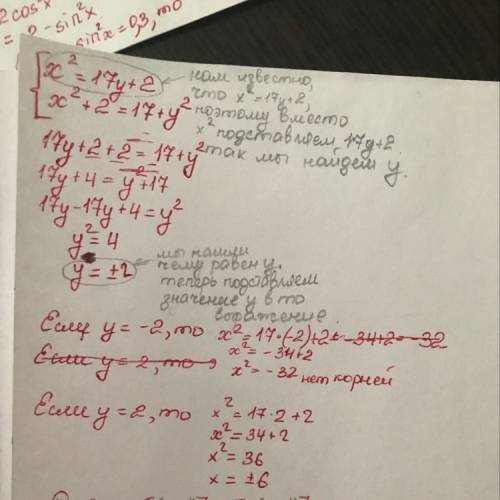 2cos²x
= 2 - sin²x
sin²x = 0,3, то
x² = 17y + 2
x² + 2 = 17 + y²
нам известно,
что x² = 17y + 2,
поэтому вместо
x² подставляем 17y + 2
так мы найдем y.
17y + 2 + 2 = 17 + y²
17y + 4 = y² + 17
17y - 17y + 4 = y²
y² = 4
y = ±2
мы нашли
чему равен y.
теперь подставляем
значение y в то
выражение
Если y = -2, то x² = 17·(-2) + 2 = -34 + 2 = -32
x² = -34 + 2
Если y = 2, то
x² = -32 нет корней
Если y = 2, то x² = 17·2 + 2
x² = 34 + 2
x² = 36
x = ±6